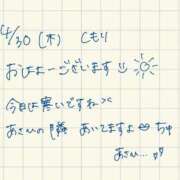 4/30 (木) くもり
おひよーございます
今日は寒いですね
あさひの隣 あいてますよ ちゅ
あさひ...